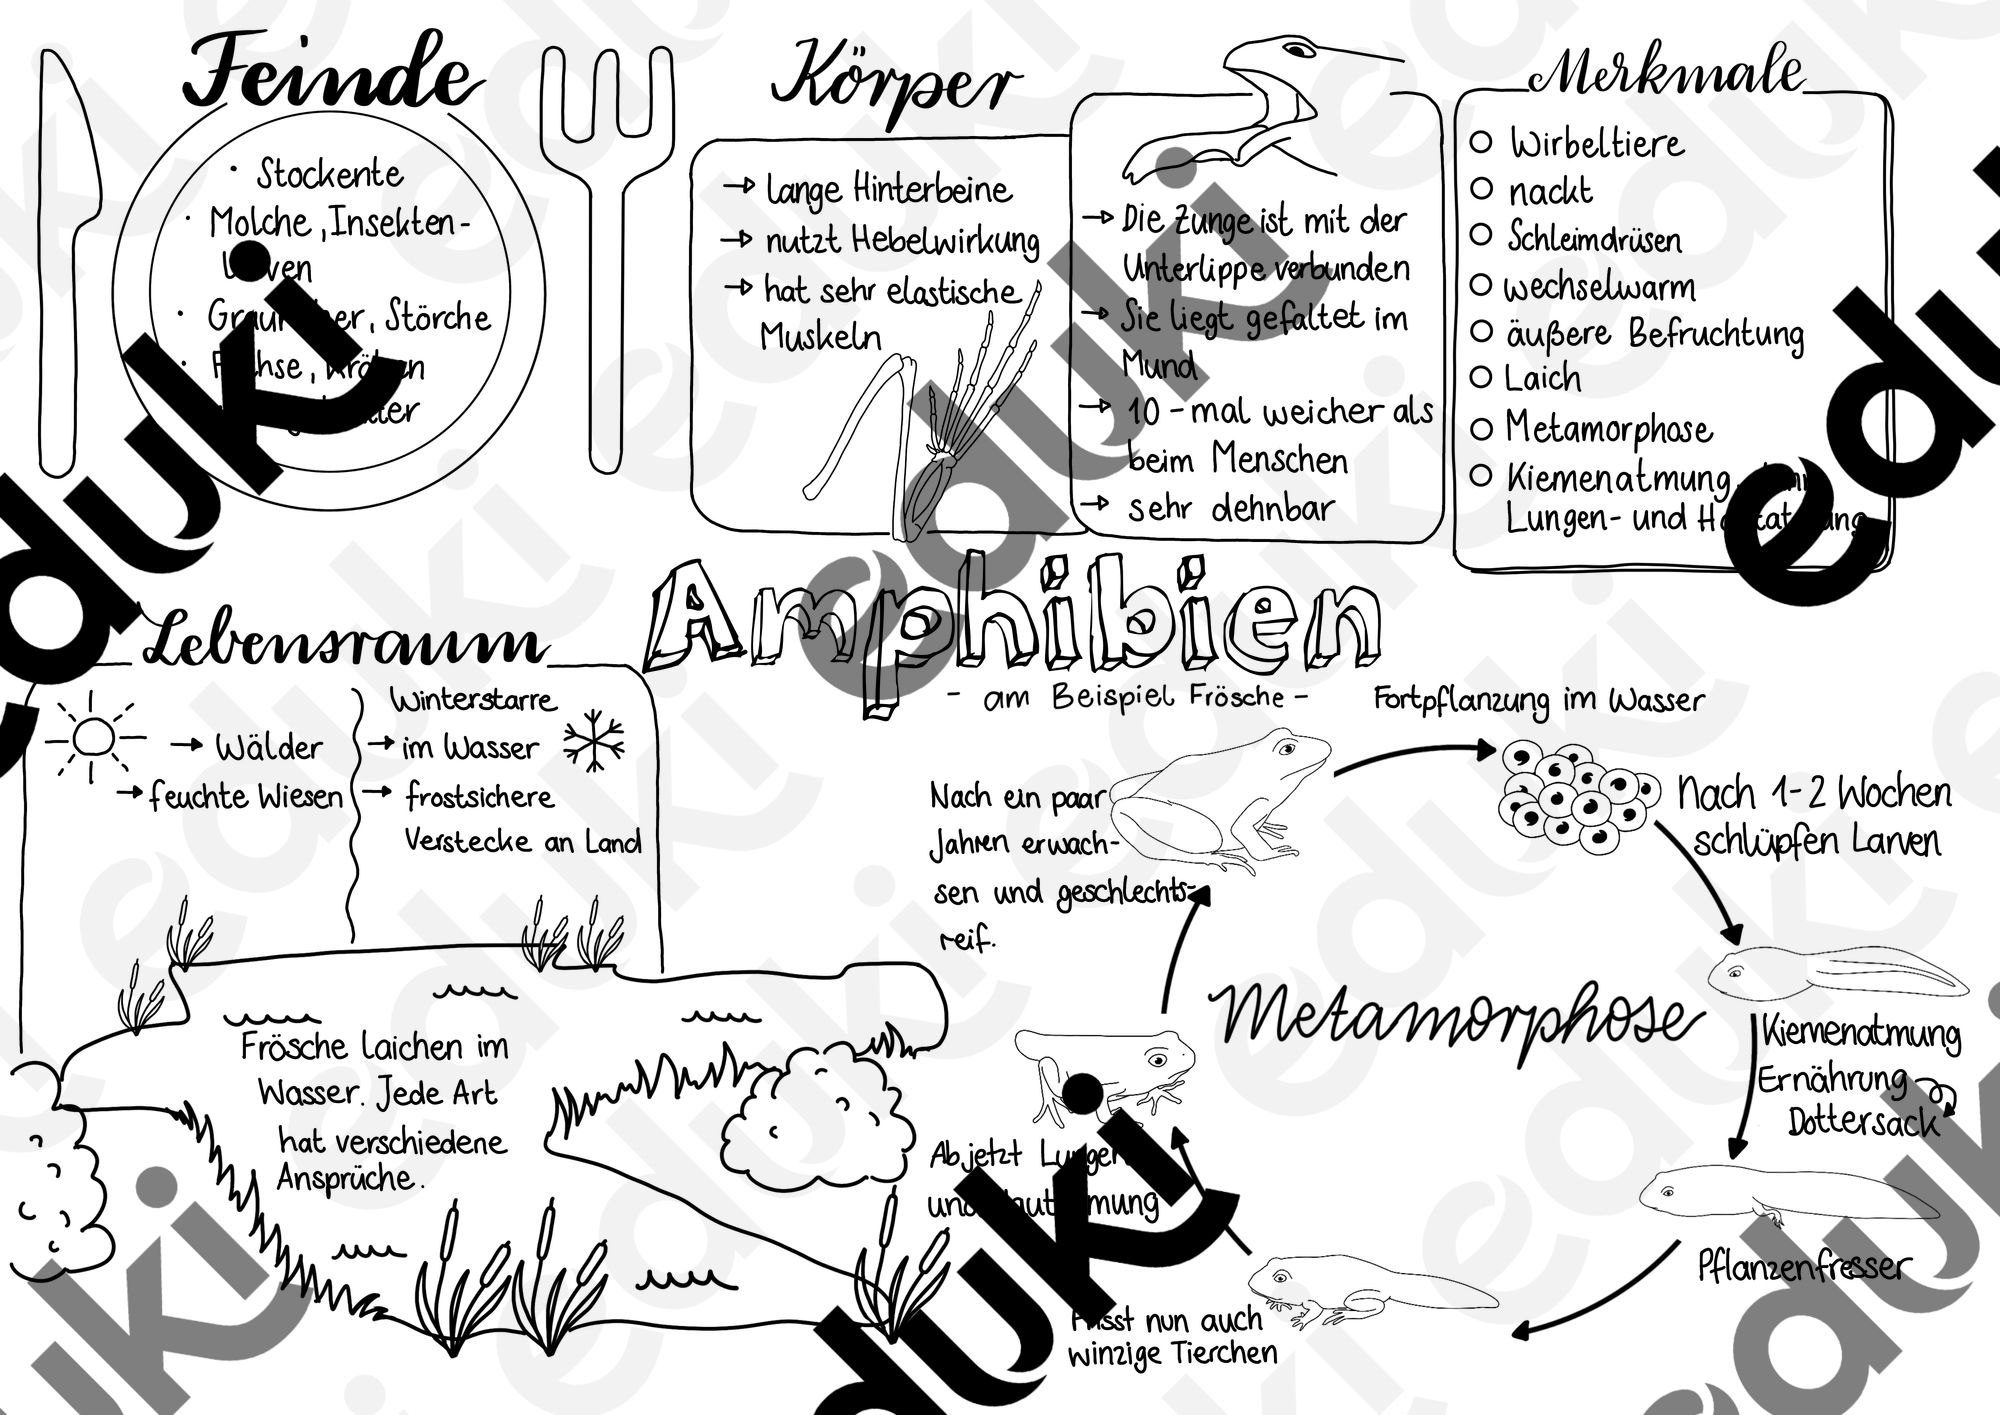 Feinde
· Stockente
· Molche, Insekten-
· Störche
Körper
→ lange Hinterbeine
→ nutzt Hebelwirkung
→ hat sehr elastische
Muskeln
→ Die Zunge ist mit der
Unterlippe verbunden
→ Sie liegt gefaltet im
Mund
→ 10-mal weicher als
beim Menschen
→ sehr dehnbar
Merkmale
Wirbeltiere
nackt
Schleimdrüsen
wechselwarm
äußere Befruchtung
Laich
Metamorphose
Kiemenatmung,
Lungen- und
Amphibien
- am Beispiel Frösche -
Lebensraum
→ Wälder
→ feuchte Wiesen
Winterstarre
→ im Wasser
→ frostsichere
Verstecke an Land
Frösche laichen im
Wasser. Jede Art
hat verschiedene
Ansprüche.
Metamorphose
Fortpflanzung im Wasser
Nach 1-2 Wochen
schlüpfen Larven
Kiemenatmung
Ernährung
Dottersack
Pflanzenfresser
nun auch
winzige Tierchen
Ab jetzt
Nach ein paar
Jahren erwach-
sen und geschlechts-
reif.
eduki
eduki
eduki
eduki